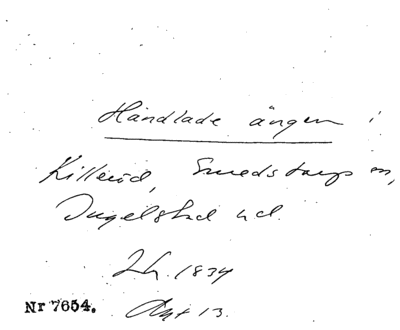 Håndlade ängen i
Killeröd, Smedstorps sn,
Ingelstad hd.
Lh. 1834
Nr 7654. Akt 13.